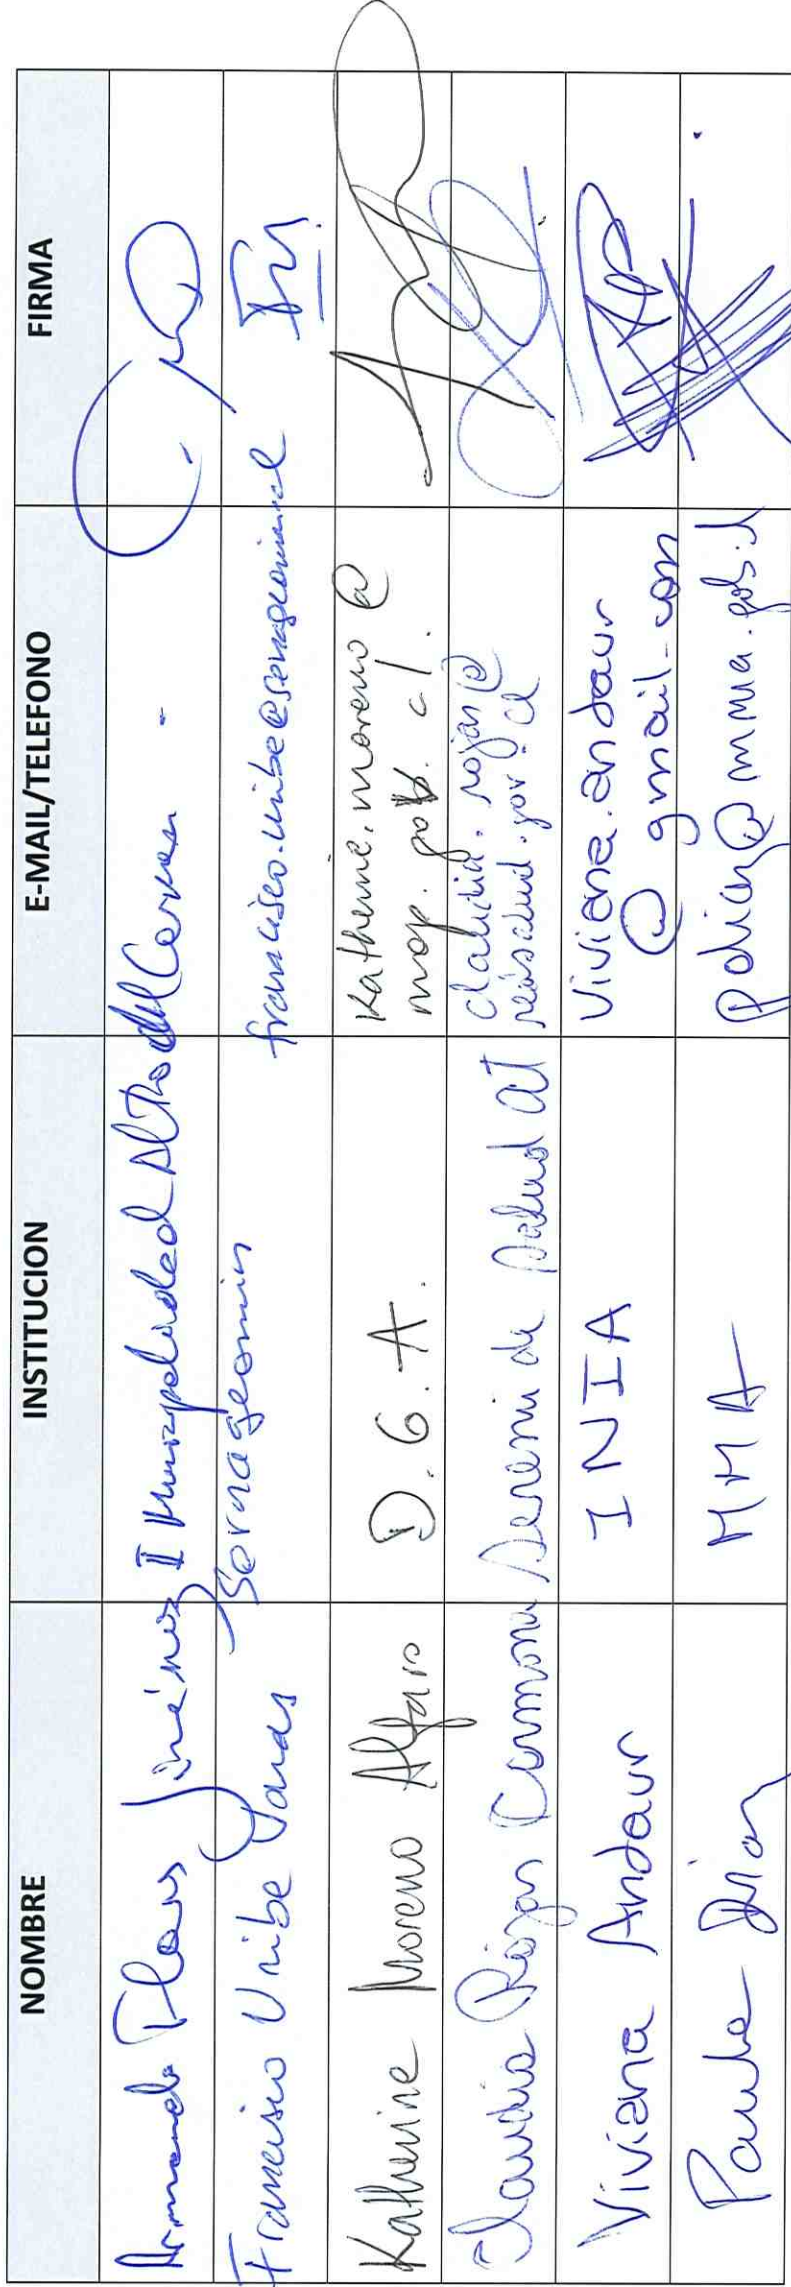 NOMBRE INSTITUCION E-MAIL/TELEFONO FIRMA
Armando Flores Jiménez I Municipalidad Alto del Carmen -
Francisco Uribe Jaras Sernageomin francisco.uribe@sernageomin.cl
Katherine Moreno Alfaro D.G.A. Katherine.moreno@
mop.gob.cl.
Claudia Rojas Carmona Seremi de Salud at claudia.rojas@
redsalud.gov.cl
Viviana Andaur INIA Viviana.andaur
@gmail.com
Paula Diaz MMA pdiaz@mma.gob.cl